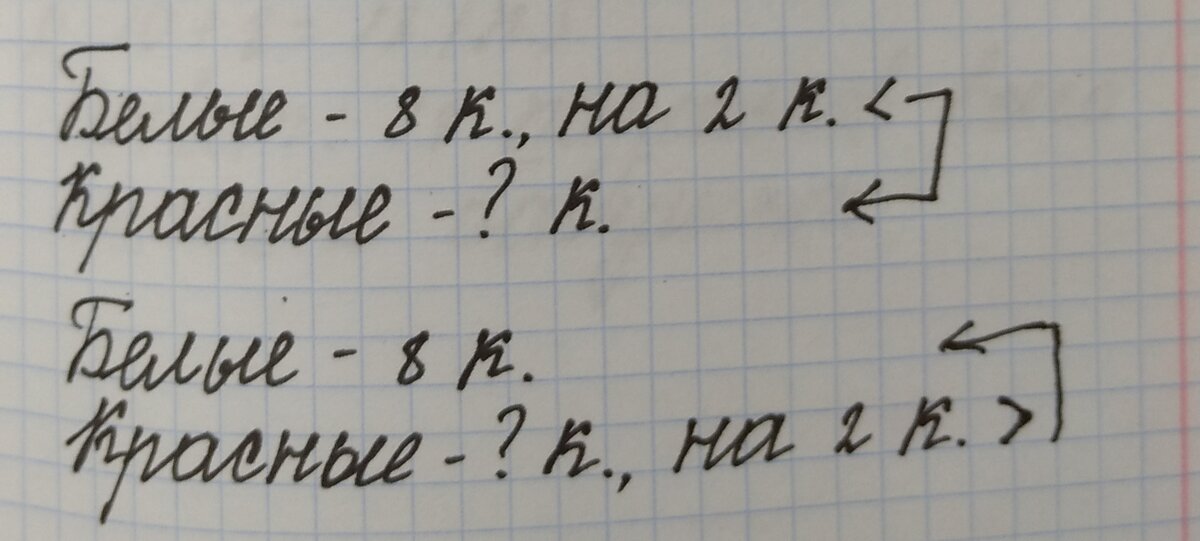 Белые - 8 к., на 2 к. <
Красные - ? к.
Белые - 8 к.
Красные - ? к., на 2 к. >